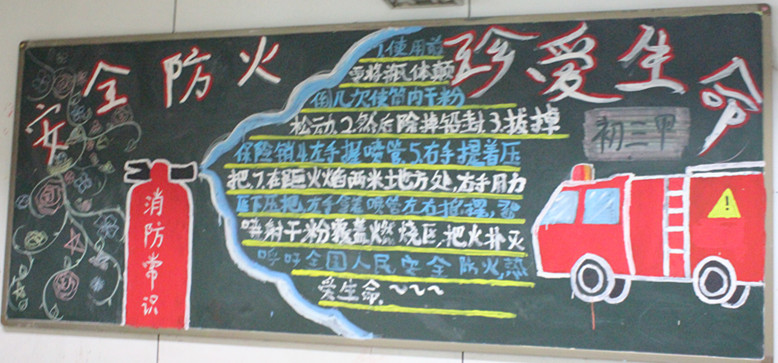 安全防火
珍爱生命
初三甲
消防常识
1.使用前
要将瓶体颠
倒几次使筒内干粉
松动.2.然后除掉铅封.3.拔掉
保险销4.左手握喷管.5.右手提着压
把.7.在距火焰两米地方处,右手用力
压下压把左手拿着喷管左右摇摆,
喷射干粉覆盖燃烧区,把火扑灭
呼吁全国人民安全防火,珍
爱生命.~~~